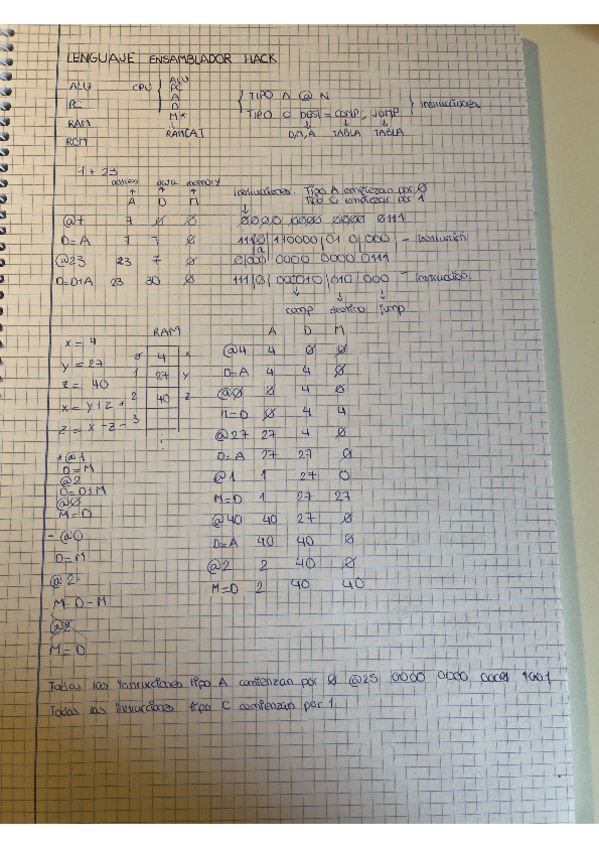 LENGUAJE ENSAMBLADOR HACK
ALU CPU { ALU PC A D M* RAM[A]
PC
RAM
ROM
{ TIPO A @ N
TIPO C DEST = COMP; JUMP } instrucciones
D,M,A TABLA TABLA
7 + 23
address data memory
A D M
instrucciones. Tipo A empiezan por 0
Tipo C empiezan por 1
@7 7 0 0 0000 0000 0000 0111
D=A 7 7 0 111|0|110000|010|000| - instrucción
a
@23 23 7 0 0000 0000 0000 0111
D=D+A 23 30 0 111|0|000010|010|000 - instrucción
comp destino jump
x = 4
y = 27
z = 40
x = y + z
z = x - z
RAM
0 4 x
1 27 y
2 40 z
3
⋮
A D M
@4 4 0 0
D=A 4 4 0
@0 0 4 0
M=D 0 4 4
@27 27 4 0
D=A 27 27 0
@1 1 27 0
M=D 1 27 27
@40 40 27 0
D=A 40 40 0
@2 2 40 0
M=D 2 40 40
@1
D=M
@2
D=D+M
@0
M=D
- @0
D=M
@2
M=D-M
@2
M=D
Todas las instrucciones tipo A comienzan por 0 @25 0000 0000 0001 1001
Todas las instrucciones tipo C comienzan por 1